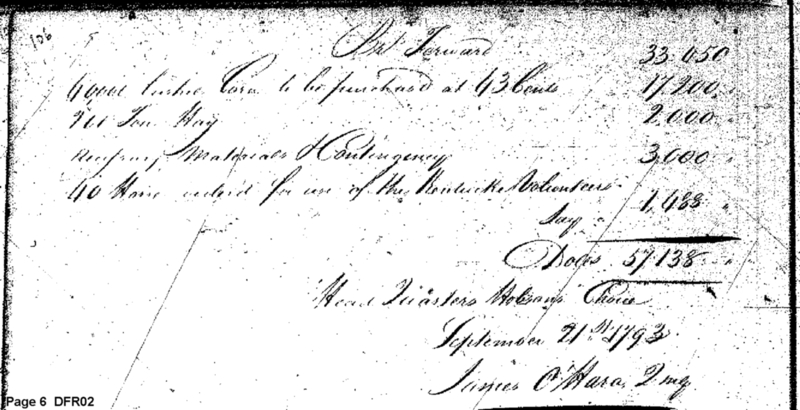 106
Bt. Forward 33.050
40000 bushs. Corn to be purchased at 43 Cents 17,200
200 Ton Hay 2,000
Materials & Contingency 3,000
40 for use of the Kentucke Volunteers
Say 1,488
Dolls. 57.138
Head Quarters Hobsons Choice
September 21st. 1793
James O'Hara, 2 mg
Page 6 DFR02